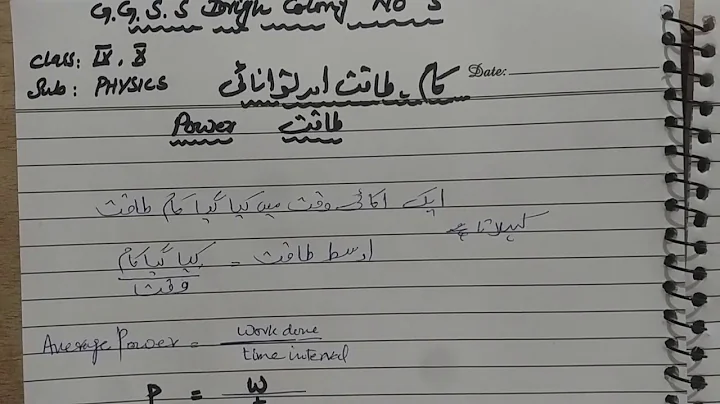 G.G.S.S Drigh Colony No 3
Class: IX, X
Sub: PHYSICS
کام، طاقت اور توانائی
Date:
Power طاقت
ایک اکائی وقت میں کیا گیا کام طاقت
کہلاتا ہے
اوسط طاقت = کیا گیا کام
وقت
Average Power = work done
time interval
P = W
t